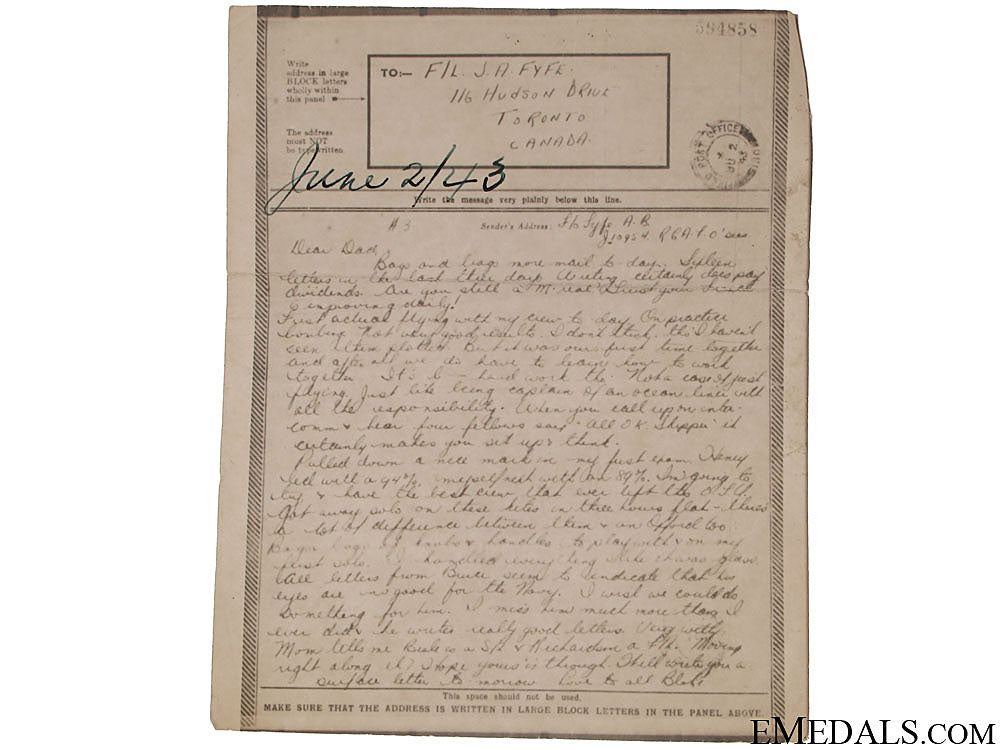 594858
Write
address in large
BLOCK letters
wholly within
this panel
The address
must NOT
be typewritten.
TO:—
F/L. J.A. FYFE.
116 HUDSON DRIVE
TORONTO
CANADA.
POST OFFICE
June 2/43
Write the message very plainly below this line.
#3
Sender's Address: Fyfe A.B.
J10954 R.C.A.F. O'Seas
Dear Dad,
Bags and bags more mail to day.
letters in the last three days. Writing certainly does pay
dividends. Are you still a
is improving daily!
First actual flying with my crew to day. On practice
bombing. Not very good results I don't think, tho I haven't
seen them plotted. But it was our first time together
and after all we do have to learn how to work
together. It's hard work tho. Not a case of just
flying. Just like being captain of an ocean liner with
all the responsibility. When you call up on inter-
comm & hear four fellows say "All O.K. Skipper" it
certainly makes you sit up & think.
Pulled down a nice mark in my first exam. Henry
led with a 94%, myself next with an 89%. I'm going to
try & have the best crew that ever left this O.T.U.
Got away solo on these kites in three hours flat - there's
a lot of difference between them & an Oxford too.
Bags & bags of knobs & handles to play with & on my
first solo. I handled everything like it was glass.
All letters from Bruce seem to indicate that his
eyes are no good for the Navy. I wish we could do
something for him. I miss him much more than I
ever did & he writes really good letters. Very witty.
Mom tells me is a S/L & Richardson a F/L. Moving
right along eh? I hope yours is through. I will write you a
surface letter to morrow Love to all Blake
This space should not be used.
MAKE SURE THAT THE ADDRESS IS WRITTEN IN LARGE BLOCK LETTERS IN THE PANEL ABOVE.
EMEDALS.COM